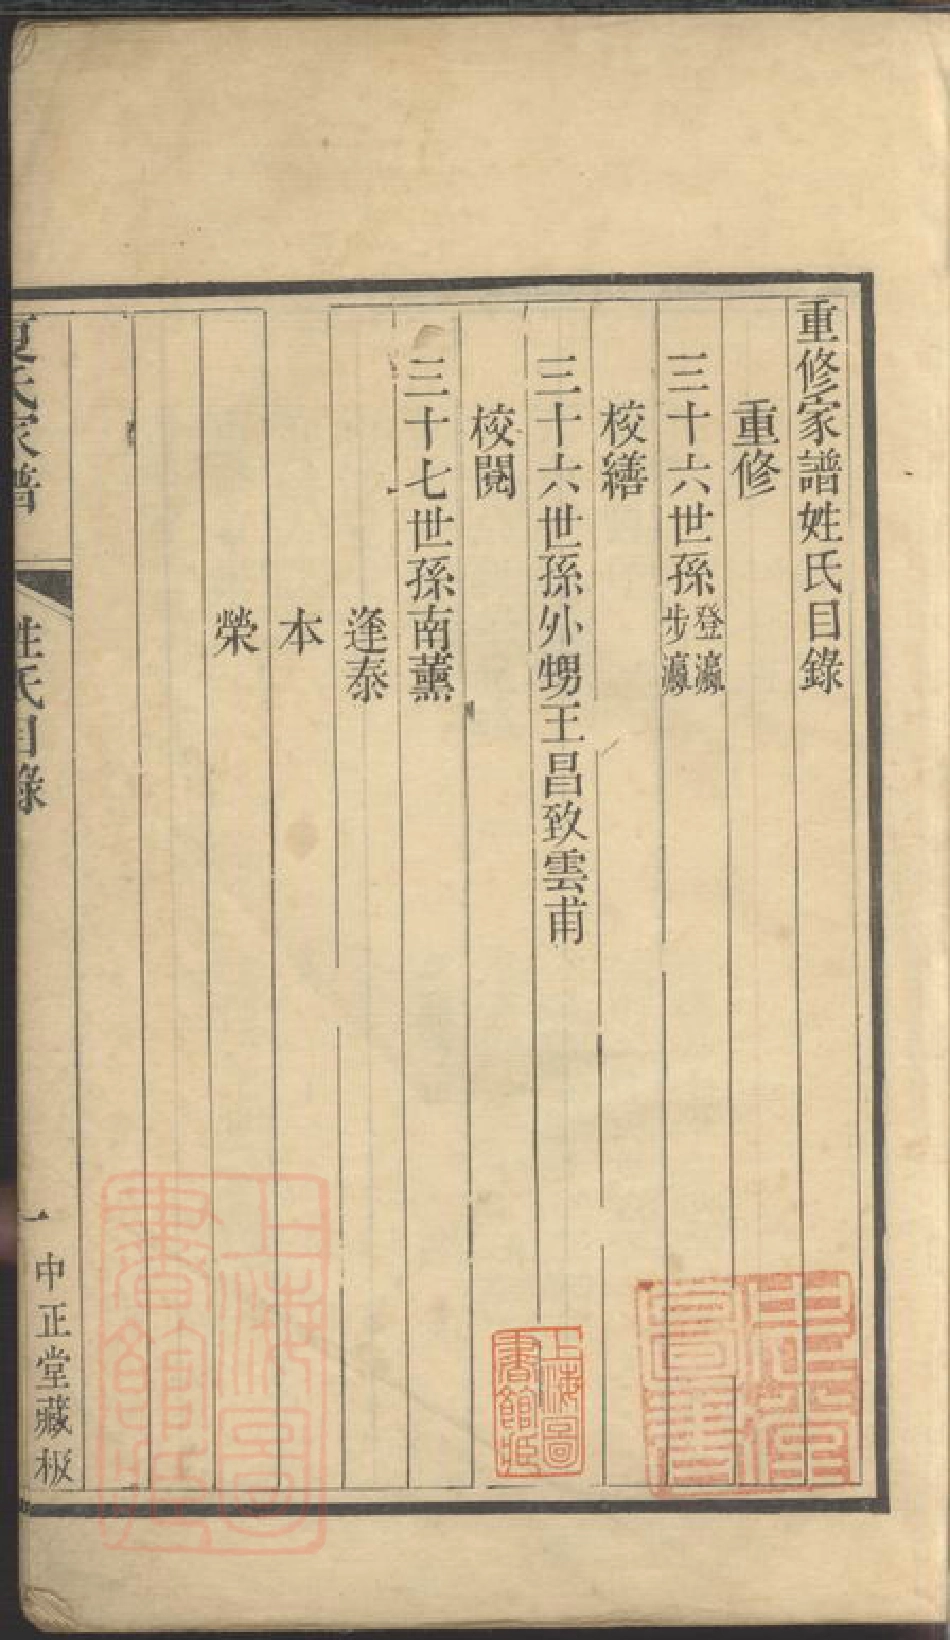 重修家譜姓氏目錄
重修
三十六世孫登瀛步瀛
校繕
三十六世孫外甥王昌致雲甫
校閱
三十七世孫南薰
逢泰
本
榮
夏氏家譜 姓氏目錄 一 中正堂藏板
上海圖書館藏
上海圖書館藏